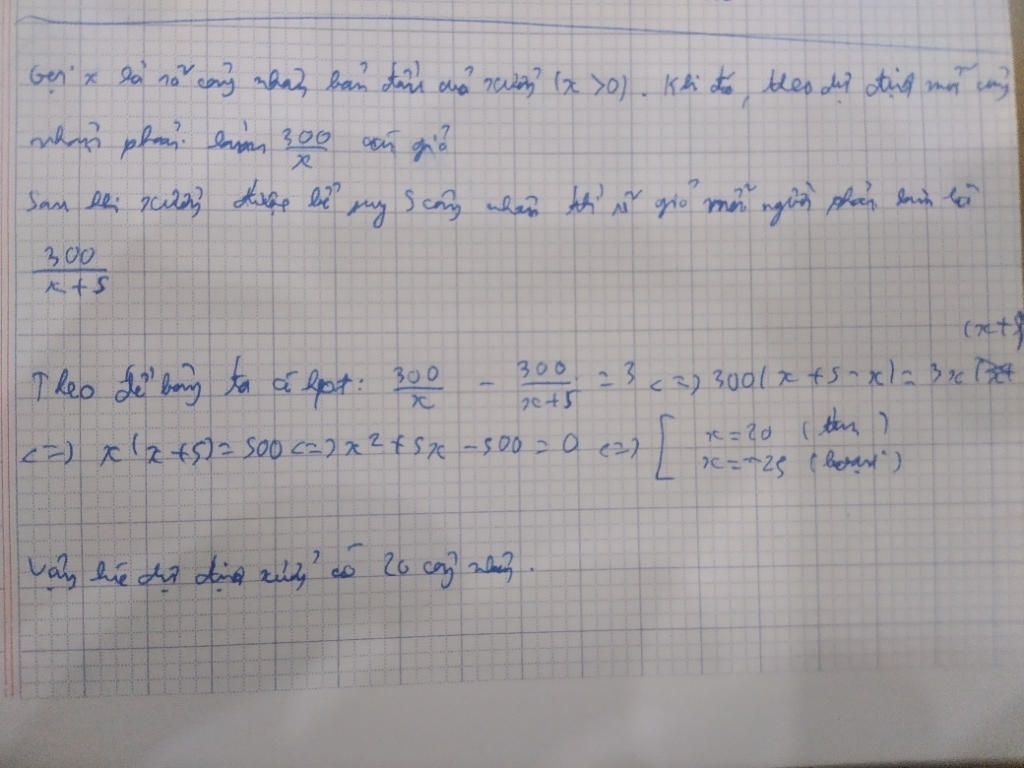 Gọi x là số công nhân ban đầu của xưởng (x > 0). Khi đó, theo dự định mỗi công
nhân phải làm 300/x giỏ
Sau khi xưởng được 5 công nhân thì số giỏ mỗi người phải làm là
300/(x+5)
(x+5)
Theo đề bài ta có pt: 300/x - 300/(x+5) = 3 <=> 300(x+5-x) = 3x
<=> x(x+5) = 500 <=> x² + 5x - 500 = 0 <=> [ x = 20 (tm)
x = -25 (loại)
Vậy lúc dự định xưởng có 20 công nhân.